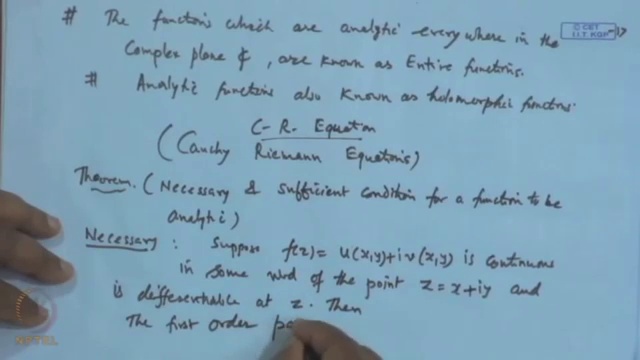 # The functions which are analytic everywhere in the
Complex plane ₵, are known as Entire functions.
# Analytic functions also known as holomorphic functions.
C-R. Equation
(Cauchy Riemann Equations)
Theorem. (Necessary & sufficient condition for a function to be
analytic)
Necessary: Suppose f(z) = u(x,y)+iv(x,y) is continuous
in some nbd of the point z = x+iy and
is differentiable at z. Then
The first order pa
© CET
I.I.T. KGP
NPTEL